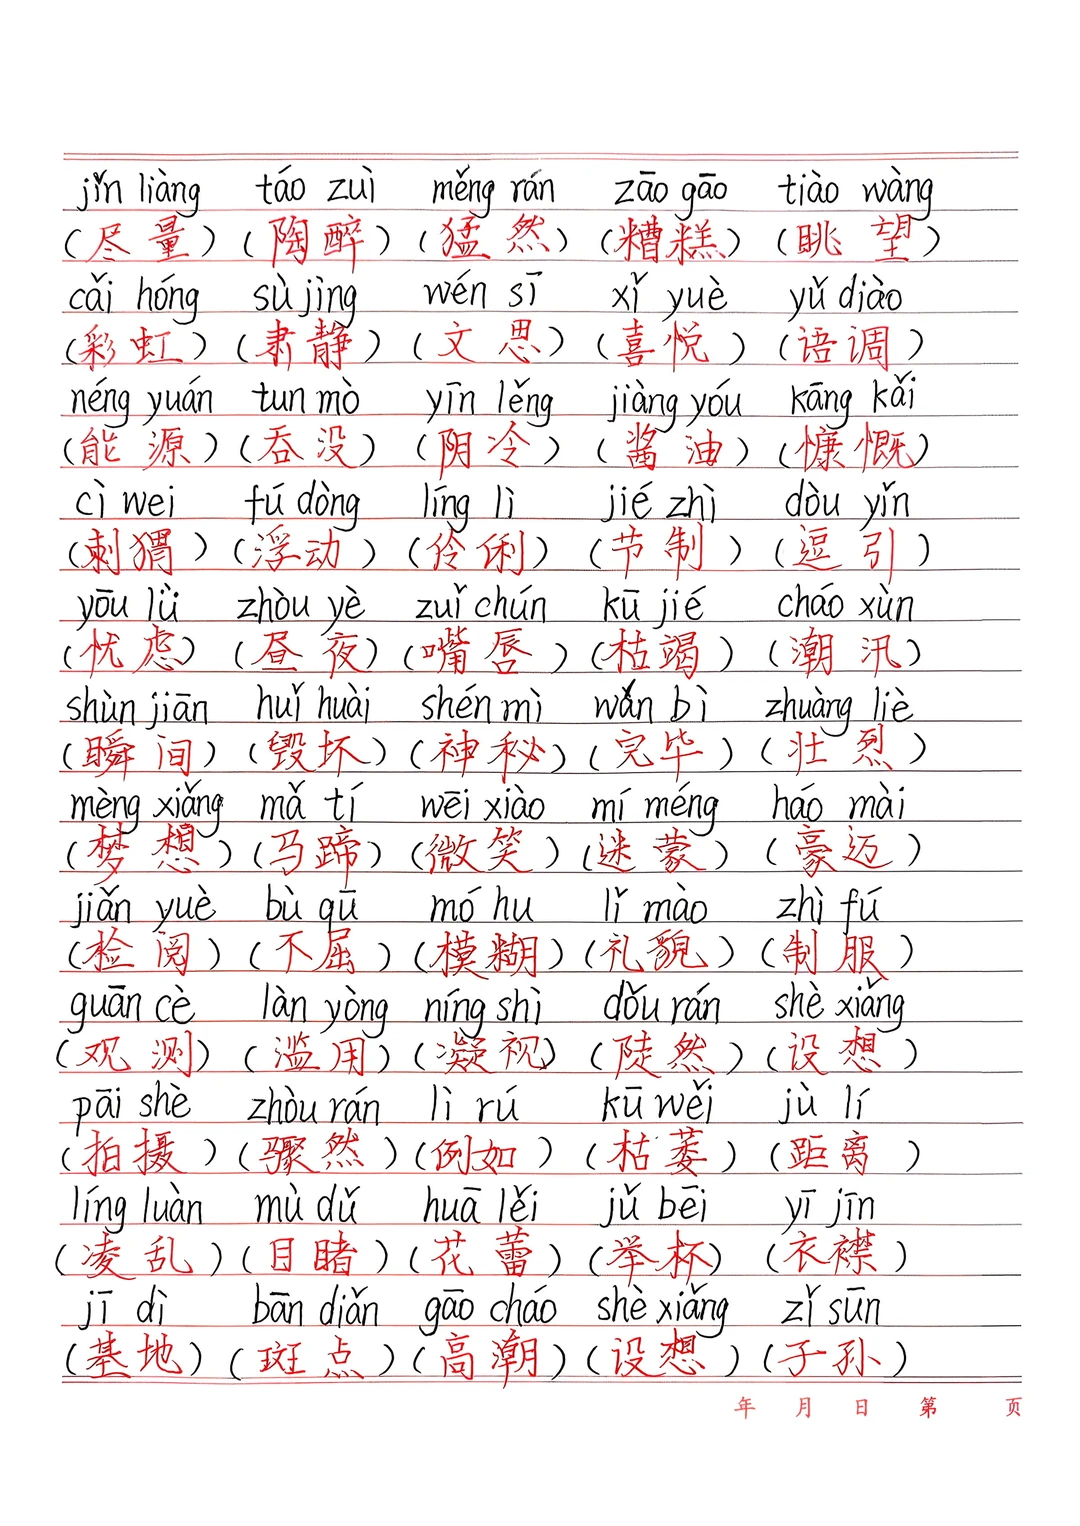 jǐn liàng táo zuì měng rán zāo gāo tiào wàng
(尽量) (陶醉) (猛然) (糟糕) (眺望)
cǎi hóng sù jìng wén sī xǐ yuè yǔ diào
(彩虹) (肃静) (文思) (喜悦) (语调)
néng yuán tun mò yīn lěng jiàng yóu kāng kǎi
(能源) (吞没) (阴冷) (酱油) (慷慨)
cì wei fú dòng líng lì jié zhì dòu yǐn
(刺猬) (浮动) (伶俐) (节制) (逗引)
yōu lǜ zhòu yè zuǐ chún kū jié cháo xùn
(忧虑) (昼夜) (嘴唇) (枯竭) (潮汛)
shùn jiān huǐ huài shén mì wán bì zhuàng liè
(瞬间) (毁坏) (神秘) (完毕) (壮烈)
mèng xiǎng mǎ tí wēi xiào mí méng háo mài
(梦想) (马蹄) (微笑) (迷蒙) (豪迈)
jiǎn yuè bù qū mó hu lǐ mào zhì fú
(检阅) (不屈) (模糊) (礼貌) (制服)
guān cè làn yòng níng shì dǒu rán shè xiǎng
(观测) (滥用) (凝视) (陡然) (设想)
pāi shè zhòu rán lì rú kū wěi jù lí
(拍摄) (骤然) (例如) (枯萎) (距离)
líng luàn mù dǔ huā lěi jǔ bēi yī jīn
(凌乱) (目睹) (花蕾) (举杯) (衣襟)
jī dì bān diǎn gāo cháo shè xiǎng zǐ sūn
(基地) (斑点) (高潮) (设想) (子孙)
年 月 日 第 页